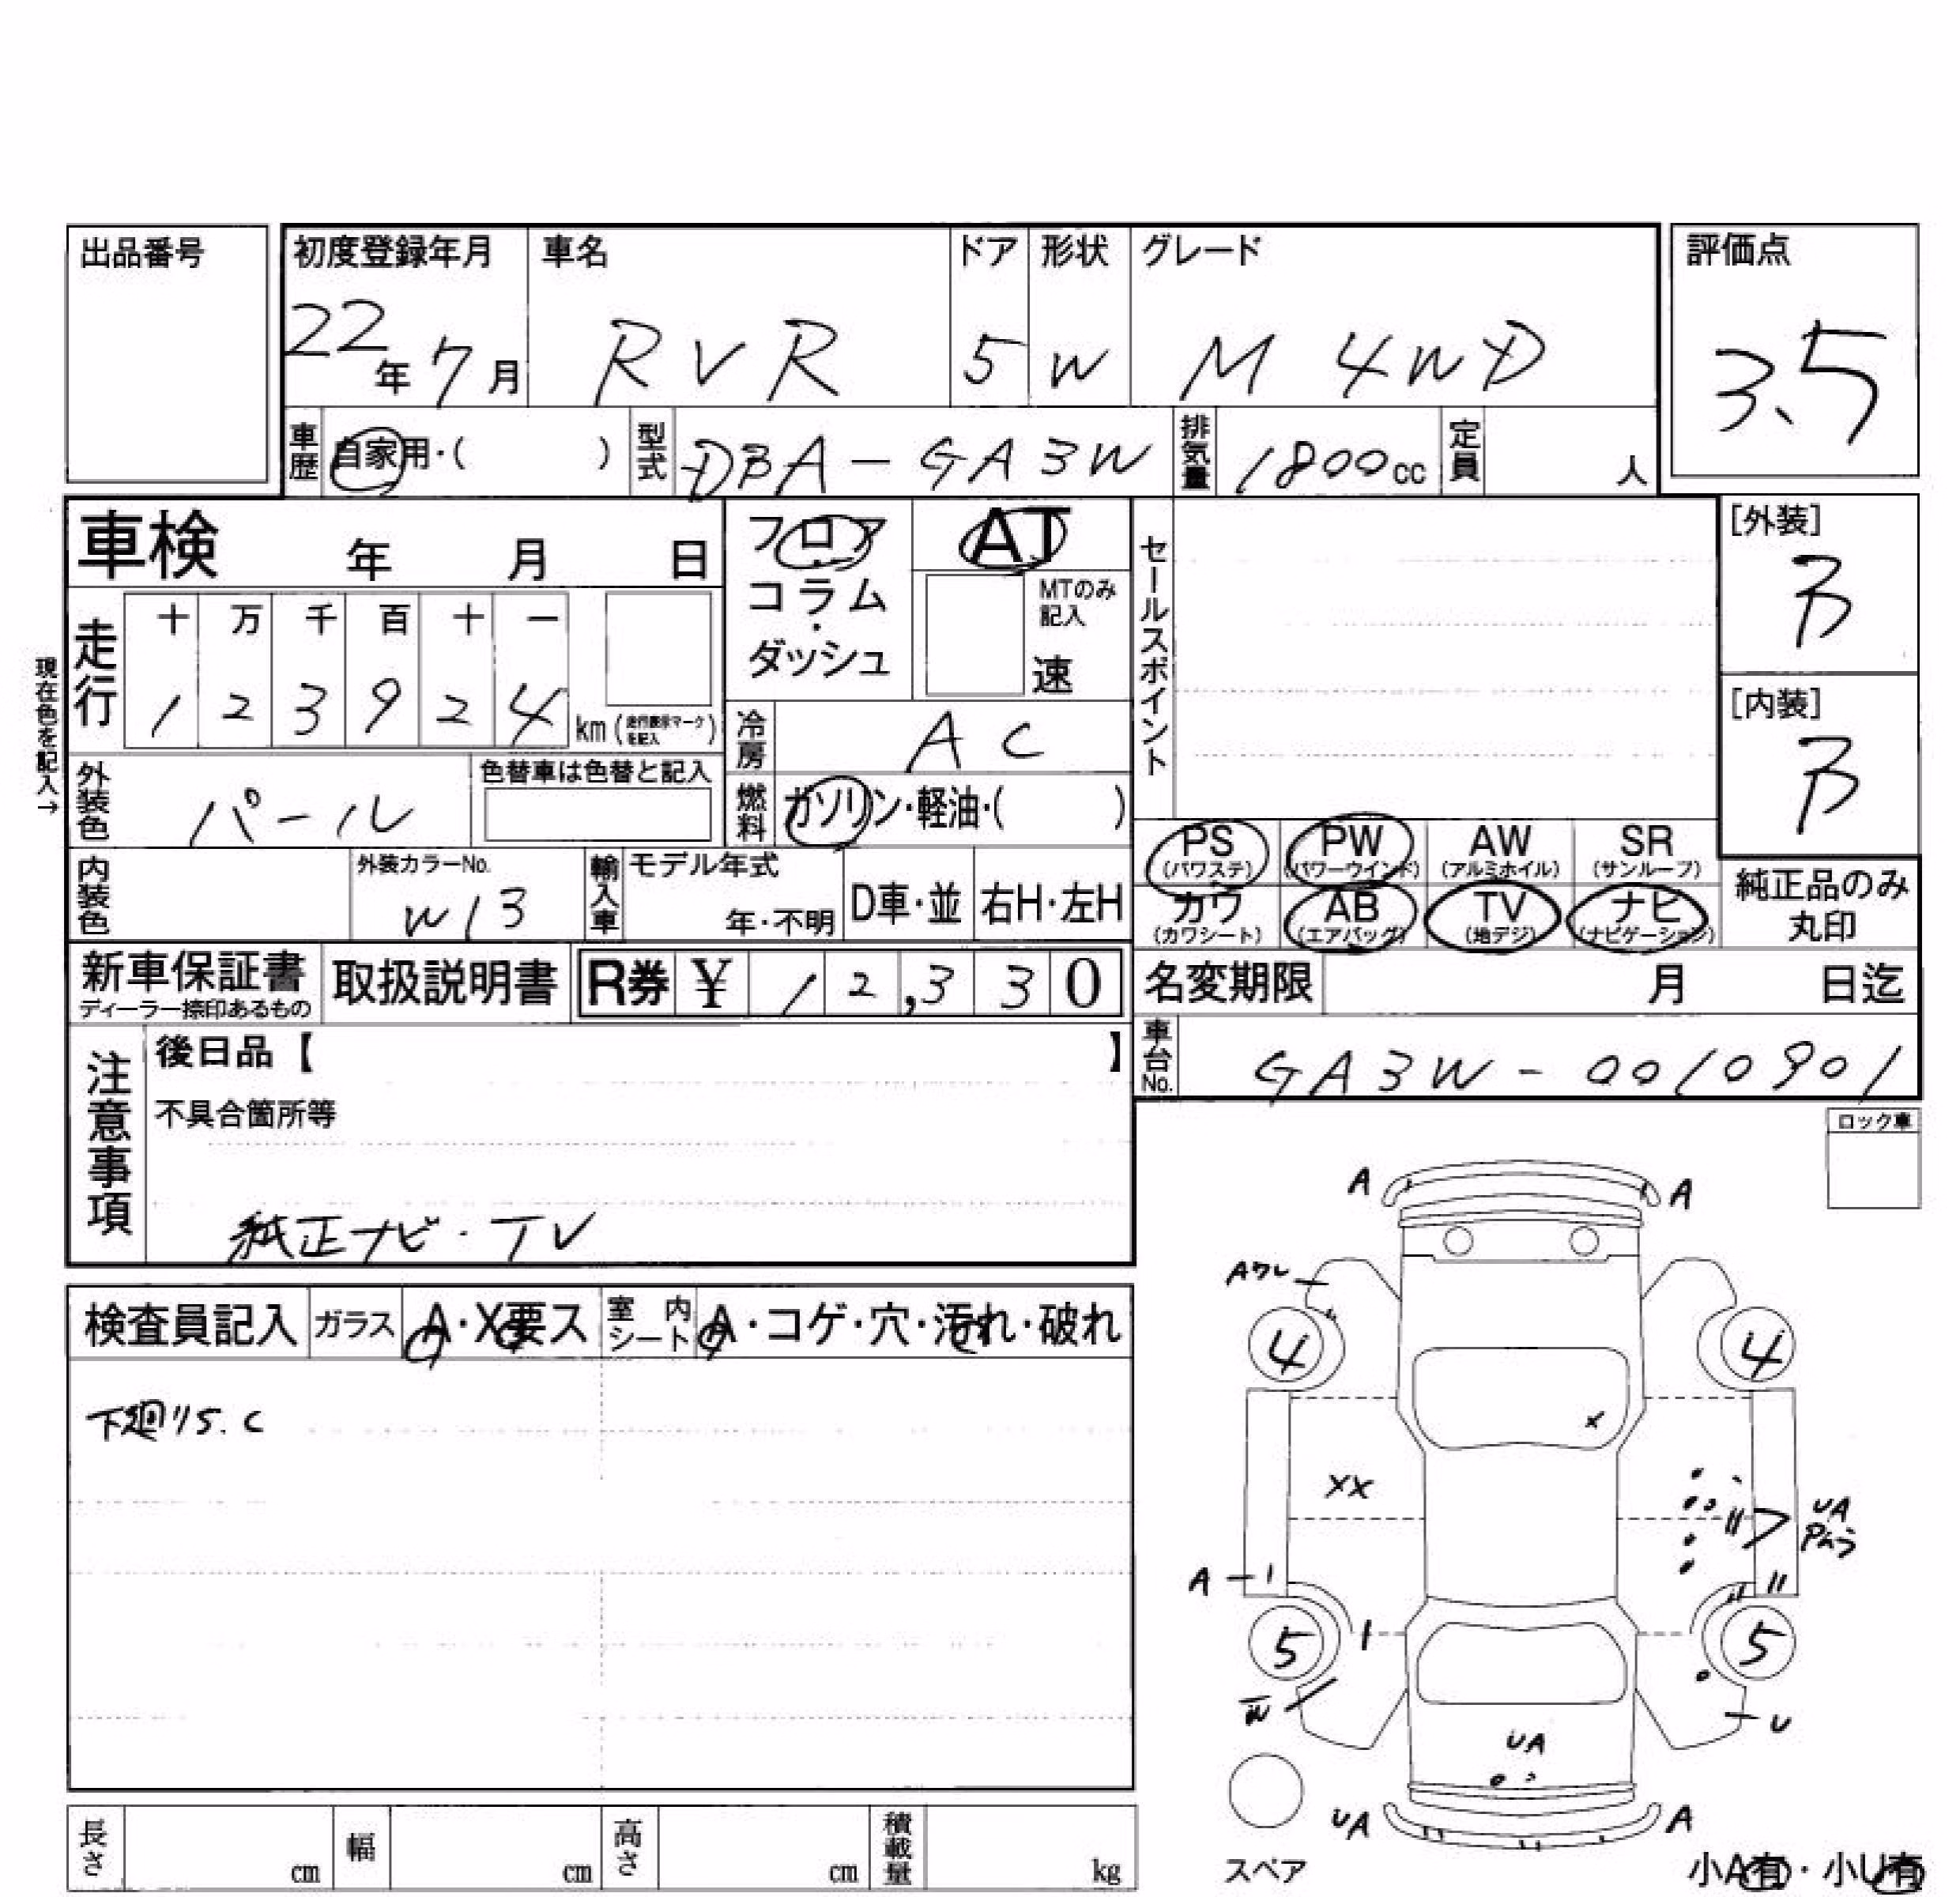 出品番号
初度登録年月 車名 ドア 形状 グレード 評価点
22年7月 RVR 5 W M 4WD 3.5
車歴 自家用・( ) 型式 DBA-GA3W 排気量 1800cc 定員 人
車検 年 月 日 フロア・コラム・ダッシュ AT MTのみ記入 速 セールスポイント [外装] B
現在色を記入→
走行 十 万 千 百 十 一
1 2 3 9 2 4 km (走行表示マークを記入)
冷房 AC
[内装] B
外装色 パール 色替車は色替と記入
燃料 ガソリン・軽油・( )
PS (パワステ) PW (パワーウインド) AW (アルミホイル) SR (サンルーフ)
カワ (カワシート) AB (エアバッグ) TV (地デジ) ナビ (ナビゲーション)
純正品のみ丸印
内装色 外装カラーNo. W13 輸入車 モデル年式 年・不明 D車・並 右H・左H
新車保証書 ディーラー捺印あるもの 取扱説明書 R券 ¥ 12,330 名変期限 月 日迄
車台No. GA3W-0010901
注意事項 後日品【 】
不具合箇所等
純正ナビ・TV
ロック車
検査員記入 ガラス A・X要ス 室内シート A・コゲ・穴・汚れ・破れ
下廻りS.C
A A
Aワレ
4 4
X
XX
UA
A
5 5
U
UA
UA A
スペア
小A有・小U有
長さ cm 幅 cm 高さ cm 積載量 kg